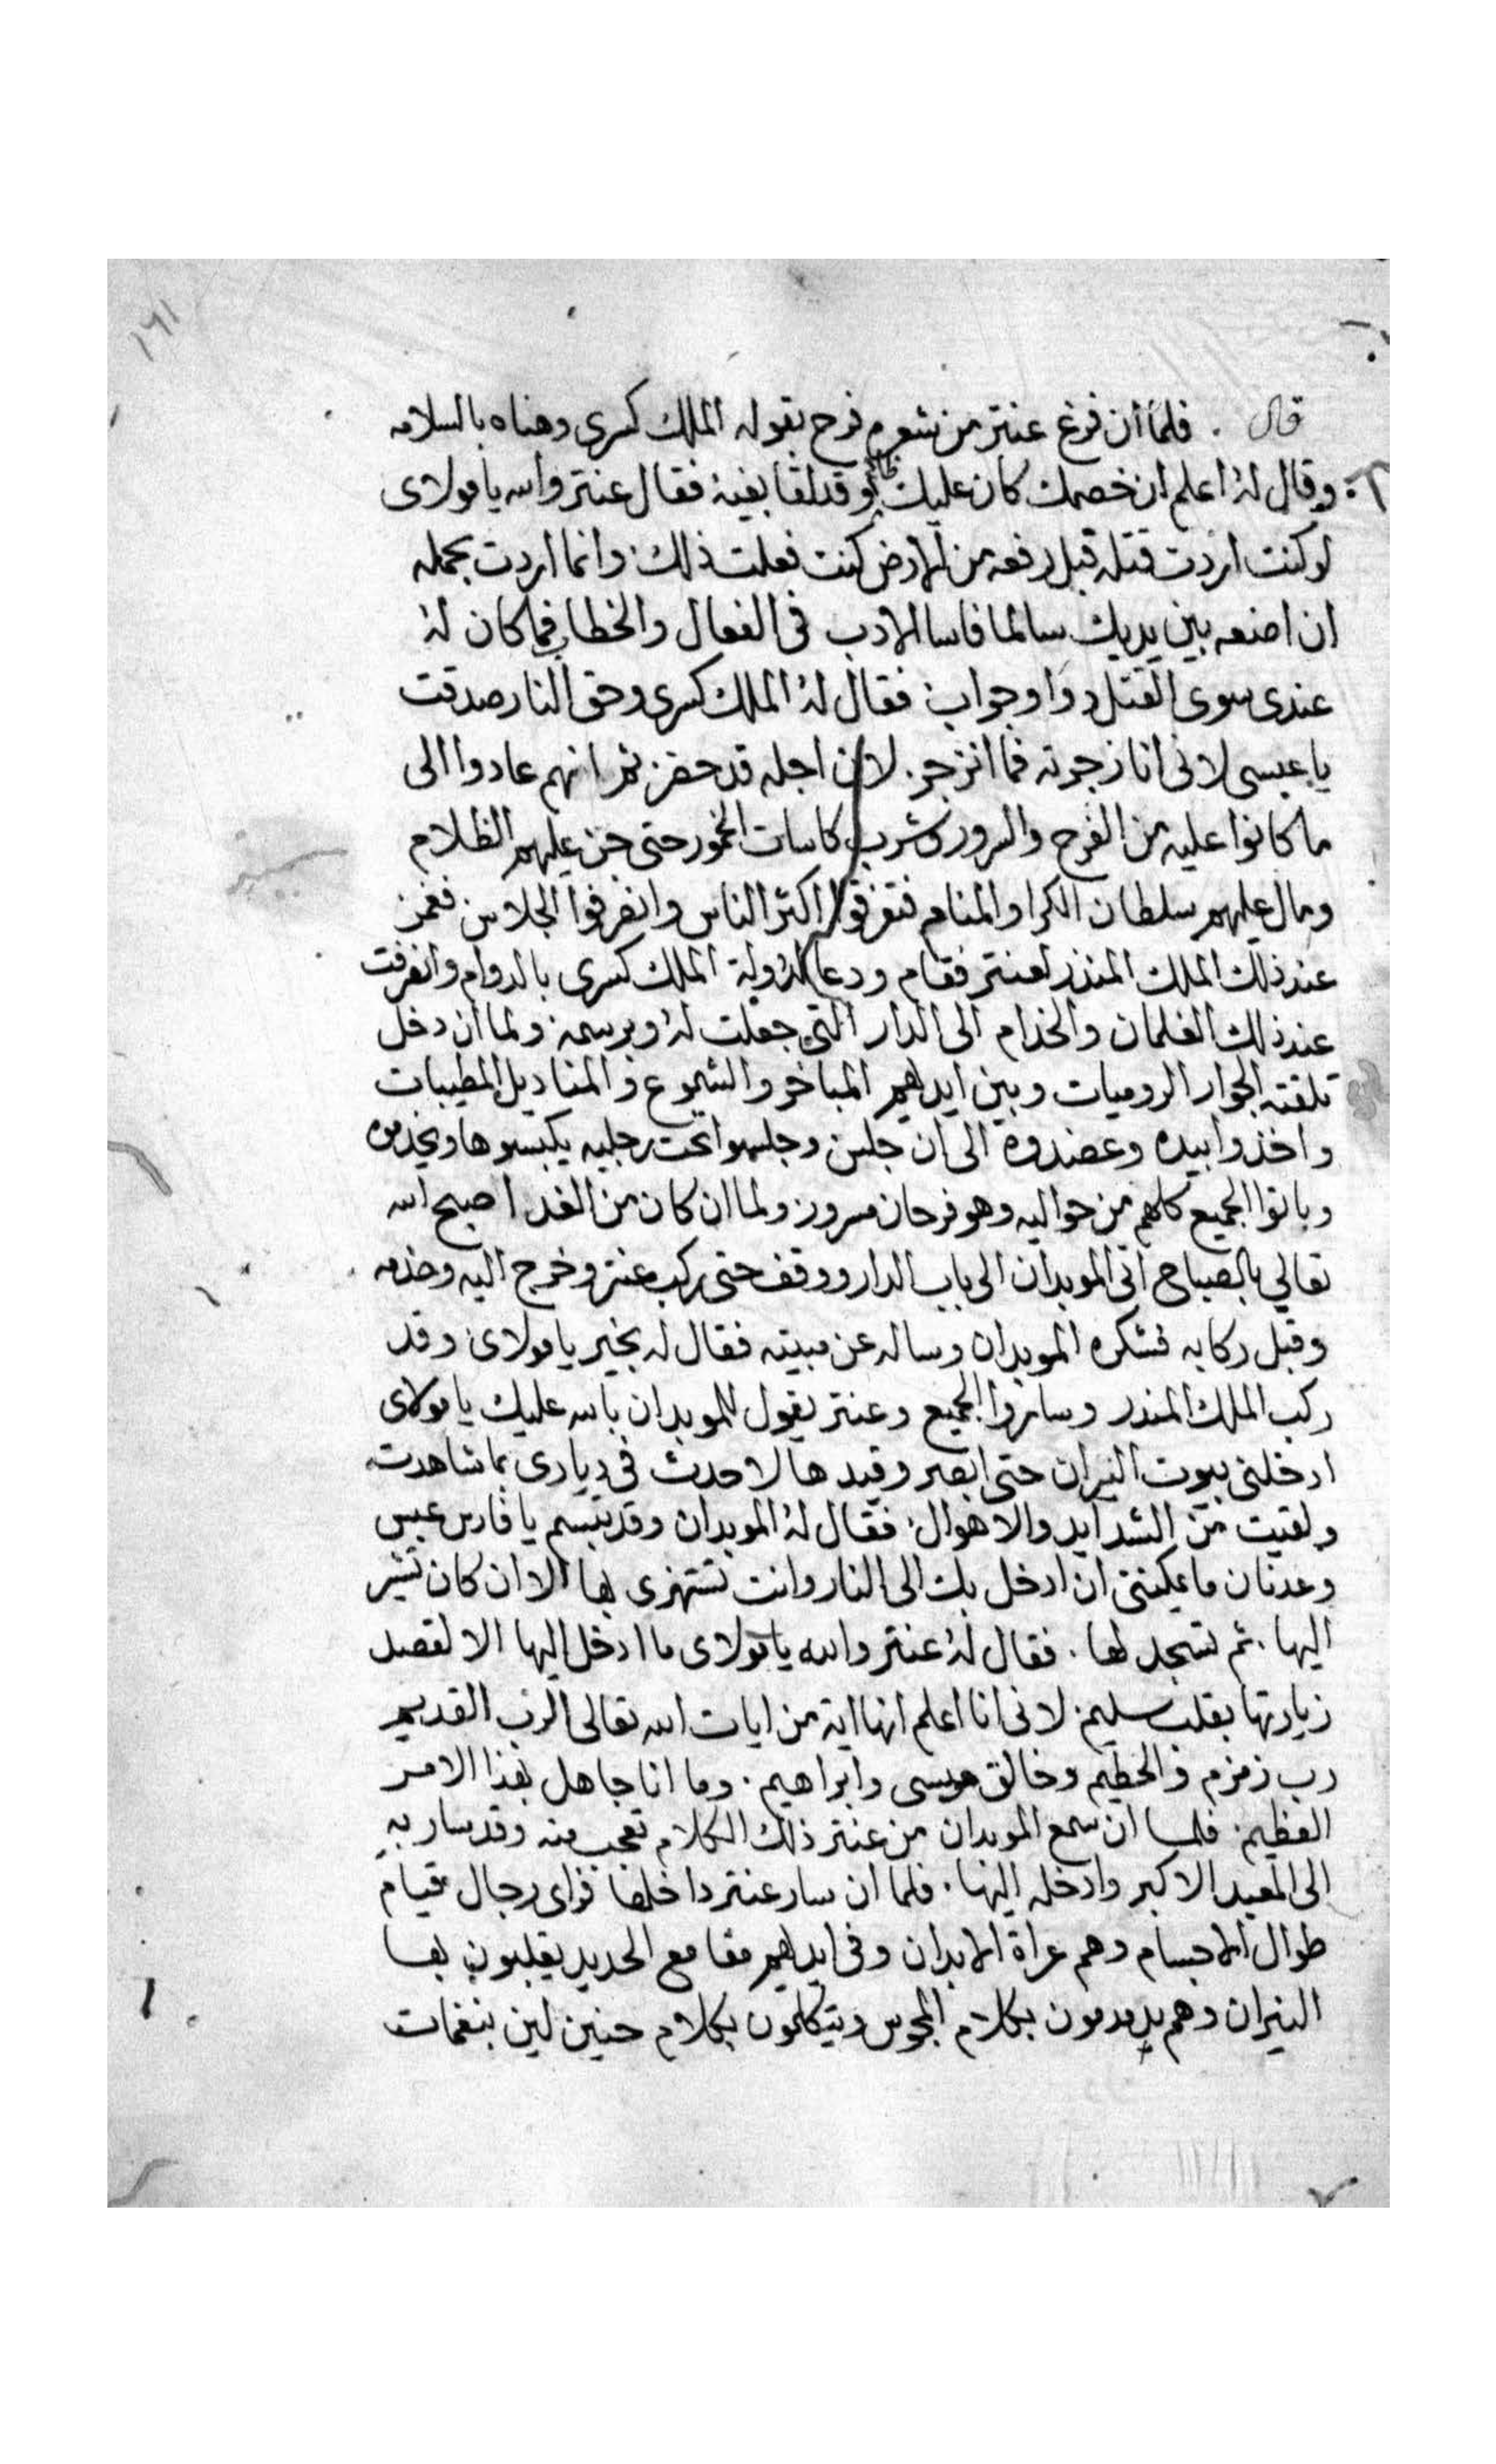 ١٦١
قال . فلما أن فرغ عنتر من شعره فرح بقوله الملك كسرى وهناه بالسلامه
وقال لهُ اعلم ان خصمك كان عليك وقد لقا بغيه فقال عنتر والله يا مولاى
لو كنت اردت قتله قبل رفعه من الارض كنت فعلت ذلك وانما اردت بحمله
ان اضعه بين يديك سالما فاسا الادب فى الفعال والخطاب فما كان لهُ
عندى سوى القتل دوا وجواب فقال لهُ الملك كسرى وحق النار صدقت
يا عبسى لانى انا زجرته فما انزجر . لان اجله قد حضر ثم انهم عادوا الى
ما كانوا عليه من الفرح والسرور وشرب كاسات الخمور حتى جن عليهم الظلام
ومال عليهم سلطان الكرا والمنام فتفرقوا اكثر الناس وانصرفوا الجلاس فغمز
عند ذلك الملك المنذر لعنتر فقام ودعا لدولة الملك كسرى بالدوام وانصرفت
عند ذلك الغلمان والخدام الى الدار التى جعلت لهُ وبرسمه ولما ان دخل
تلقته الجوار الروميات وبين ايديهم المباخر والشموع والمناديل المطيبات
واخذوا بيده وعضدوه الى ان جلس وجلسوا تحت رجليه يكبسوها ويخدموه
وباتوا الجميع كلهم من حواليه وهو فرحان مسرور ولما ان كان من الغد اصبح الله
تعالي بالصباح اتى الموبدان الى باب الدار ووقف حتى ركب عنتر وخرج اليه وخدمه
وقبل ركابه فشكره الموبدان وساله عن مبيته فقال له بخير يا مولاى وقد
ركب الملك المنذر وساروا الجميع وعنتر يقول للموبدان بالله عليك يا مولاى
ادخلنى بيوت النيران حتى ابصر وقيدها لاحدث فى ديارى بما شاهدت
ولقيت من الشدايد والاهوال فقال لهُ الموبدان وقد تبسم يا فارس عبس
وعدنان ما يمكننى ان ادخل بك الى النار وانت تستهزى بها الا ان كان تشير
اليها . ثم تسجد لها . فقال لهُ عنتر والله يا مولاى ما ادخل اليها الا لقصد
زيارتها بقلب سليم لانى انا اعلم انها اية من ايات الله تعالى الرب القديم
رب زمزم والحطيم وخالق موسى وابراهيم . وما انا جاهل بهذا الامر
العظيم . فلما ان سمع الموبدان من عنتر ذلك الكلام تعجب منه وقد سار به
الى المعبد الاكبر وادخله اليها . فلما ان سار عنتر داخلها فراى رجال قيام
طوال الاجسام وهم عراة الابدان وفى ايديهم مقامع الحديد يقلبون بها
النيران وهم يدمدمون بكلام المجوس ويتكلمون بكلام حنين لين بنغمات